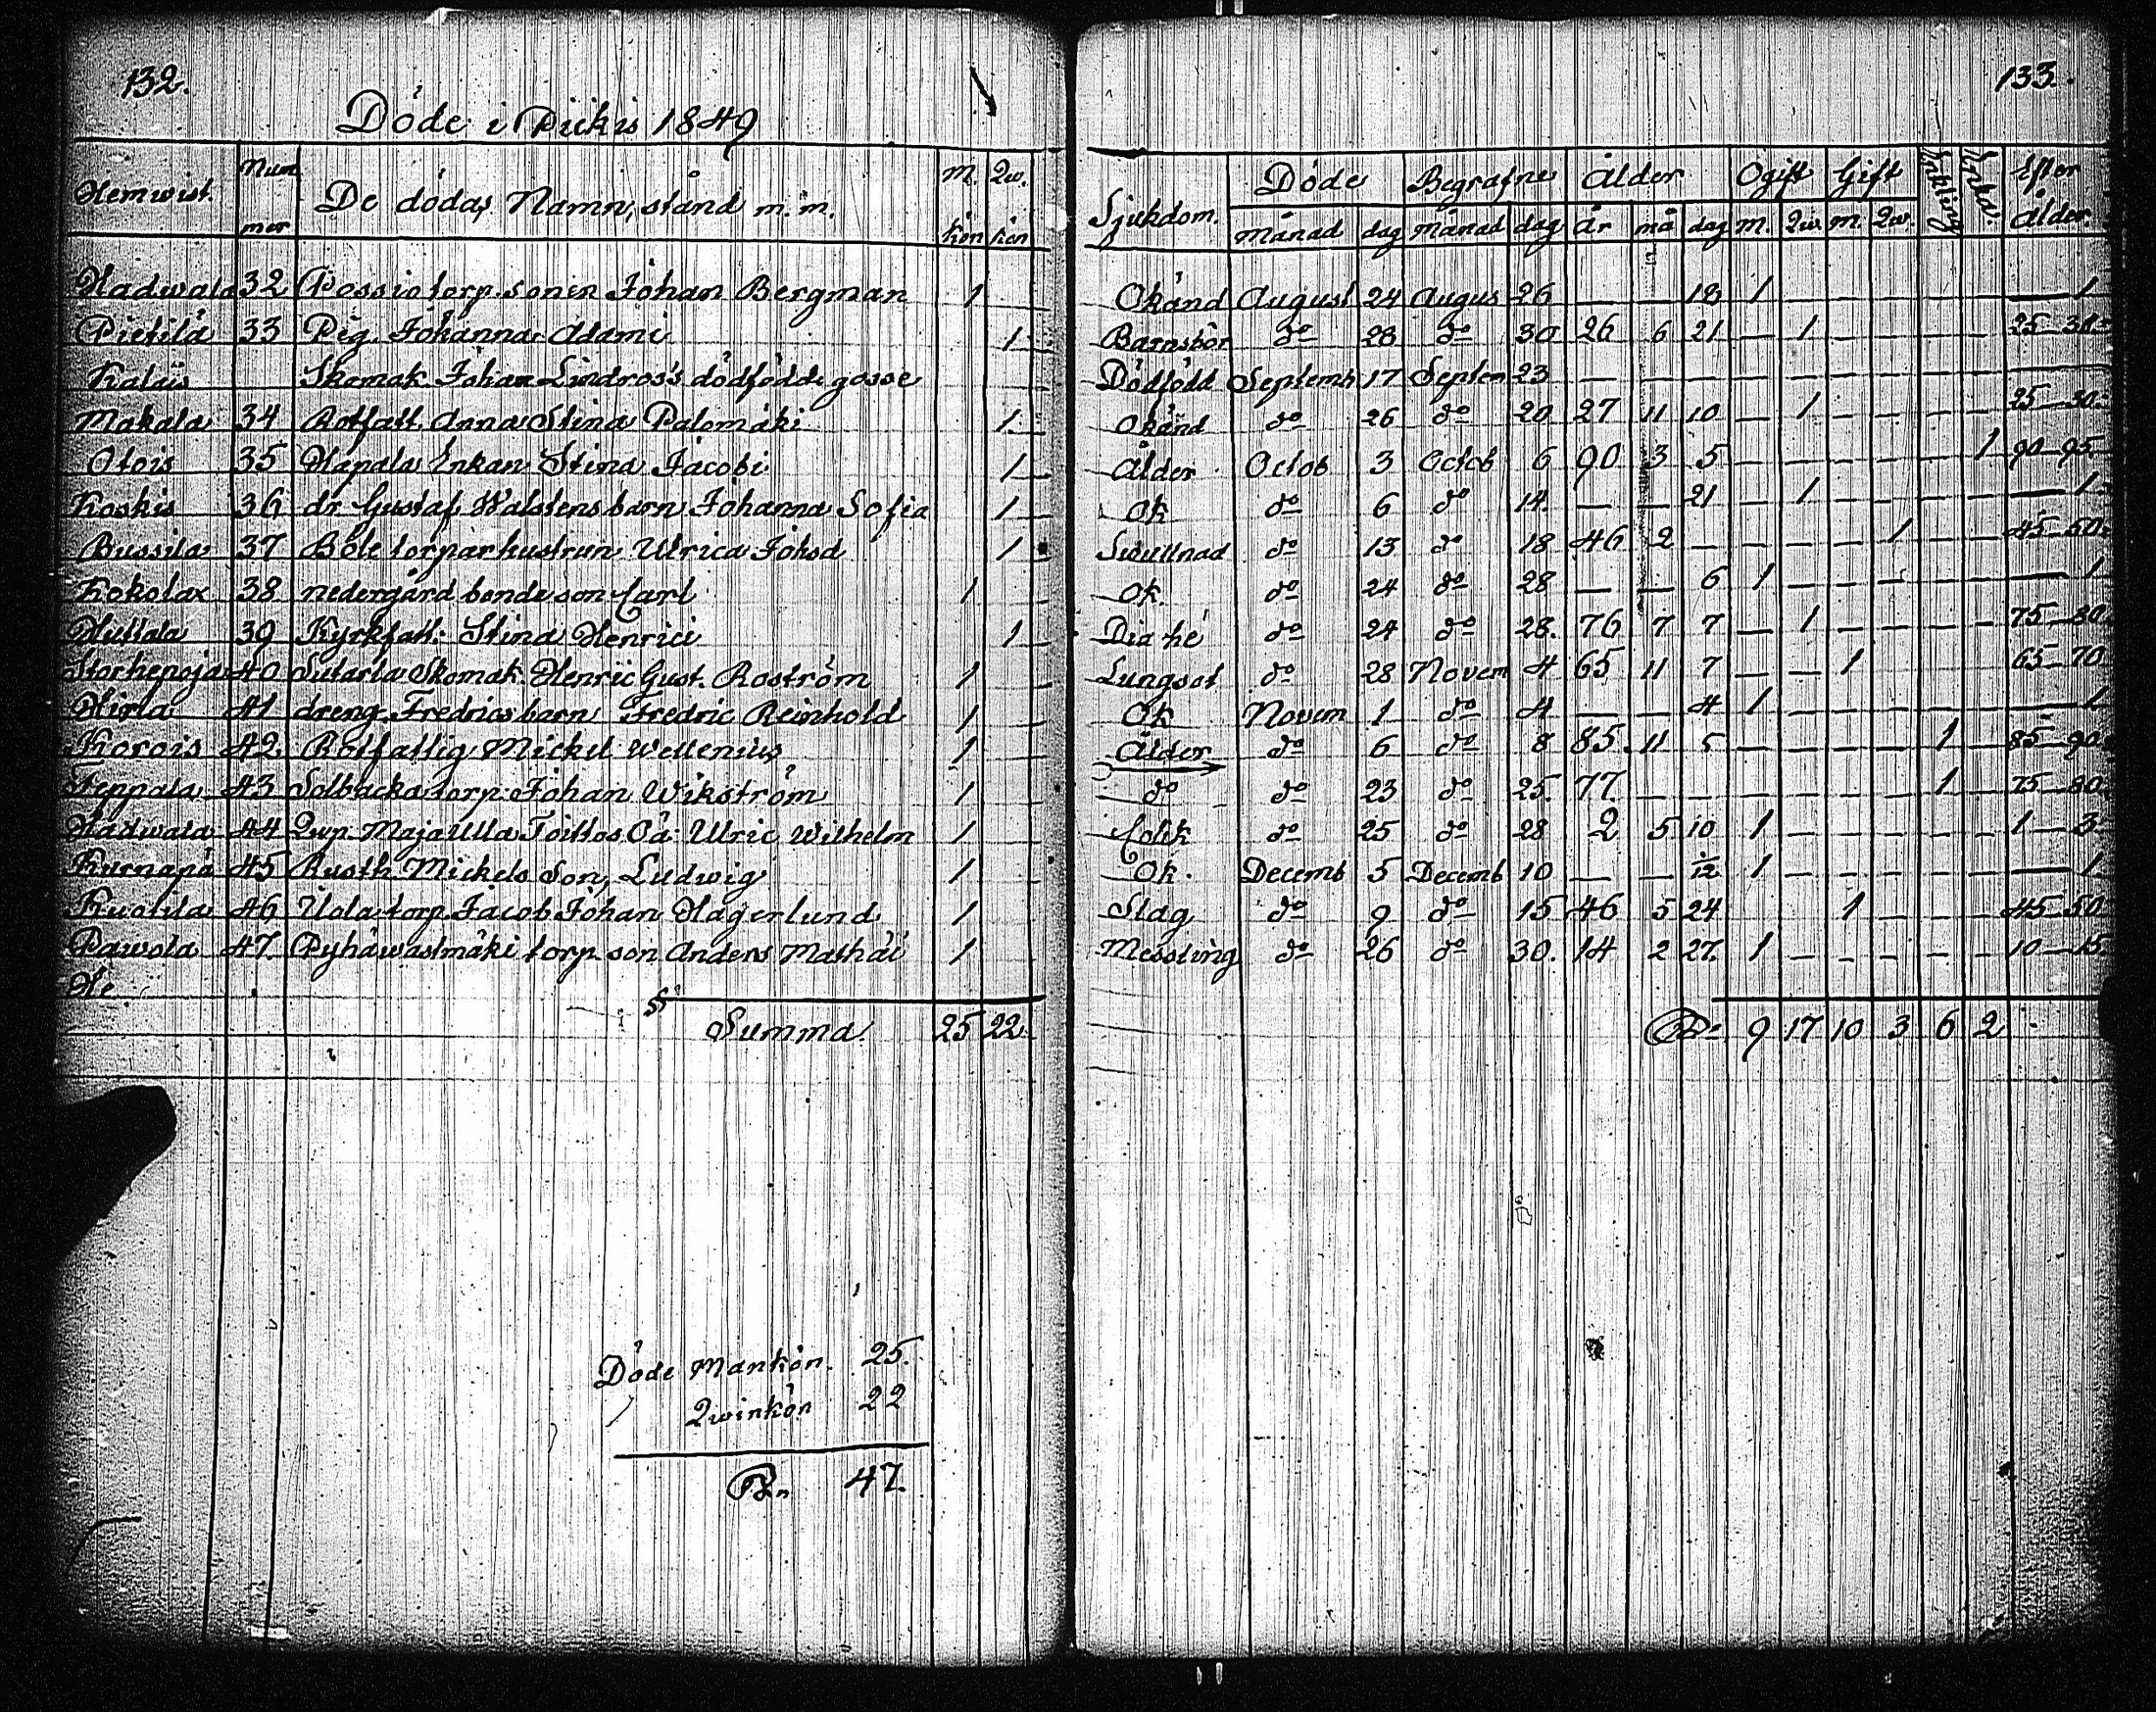 132.
Döde i Pickis 1849
Hemwist. Nummer De dödas Namn, stånd m. m. M. kön Qw. kön
Hadwala 32 Possio torp. sonen Johan Bergman 1
Pietilä 33 Pig. Johanna Adami 1
Kalais Skomak. Johan Lindros's dödfödde gosse
Makala 34 Rotfatt. Anna Stina Palomäki 1
Otois 35 Hapala Enkan Stina Jacobi 1
Koskis 36 dr. Gustaf Walstens barn Johanna Sofia 1
Bussila 37 Böle torparhustrun Ulrica Johsd 1
Kokolax 38 nedergård bonde son Carl 1
Huttala 39 Kyrkfatt. Stina Henrici 1
Storhepoja 40 Sutarla Skomak. Henric Gust. Roström 1
Hirla 41 dreng. Fredrics barn Fredric Reinhold 1
Korois 42 Rotfattig Mickel Wellenius 1
Teppala 43 Solbacka torp. Johan Wikström 1
Hadwala 44 Qwp. Maja Ulla Toittos Oä. Ulric Wilhelm 1
Kurnapä 45 Rusth. Mickels Son, Ludwig 1
Kuotila 46 Uola torp. Jacob Johan Hagerlund 1
Pawola 47. Pyhäwastmäki torp. son Anders Mathäi 1
He
Summa 25 22
Döde Mankön. 25.
Qwinkön 22
47.
133.
Sjukdom. Döde månad dag Begrafne månad dag Ålder år må dag Ogift M. Qw. Gift M. Qw. Enkling Enka. Efter Ålder
Okänd August 24 Augus 26 — — 18 1 — 1
Barnsbör do 28 do 30 26 6 21 — 1 25—30
Dödfödd Septemb 17 Septem 23
Okänd do 26 do 20 27 11 10 — 1 25—30.
Ålder Octob 3 Octob 6 90 3 5 1 90—95.
Ok do 6 do 14. — — 21 — 1 — 1
Swullnad do 13 do 18 46 2 — 1 45—50.
Ok. do 24 do 28 — — 6 1 — 1
Dia hé do 24 do 28. 76 7 7 — 1 75—80
Lungsot do 28 Novem 4 65 11 7 — — 1 65—70
Ok Novem 1 do 4 — — 4 1 — 1
Ålder do 6 do 8 85. 11 5 1 85—90.
do do 23 do 25. 77. 1 75—80.
Colik do 25 do 28 2 5 10 1 1—3
Ok. Decemb 5 Decemb 10 — — 12 1 — 1
Slag do 9 do 15 46 5 24 1 45—50
Messling do 26 do 30. 14 2 27. 1 10—15.
9 17 10 3 6 2